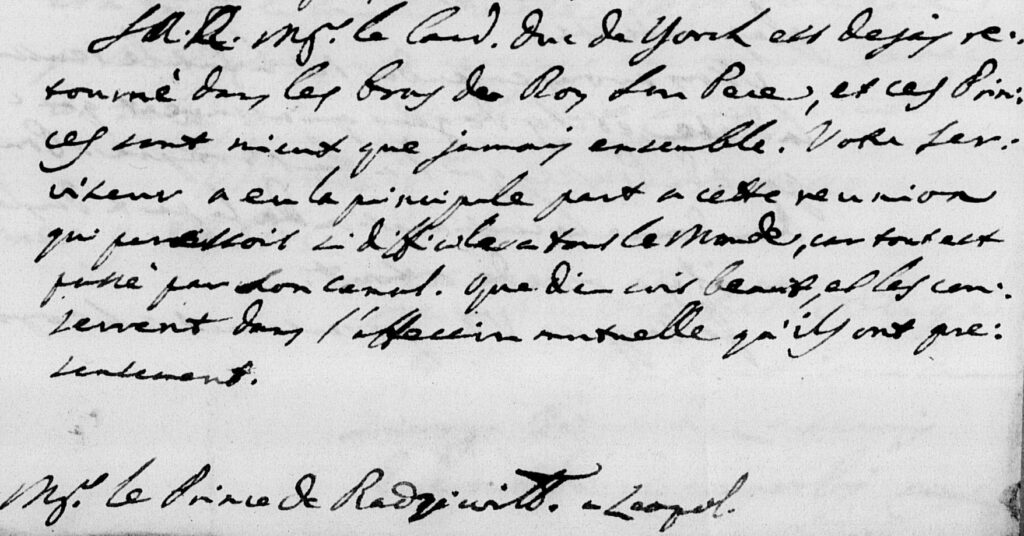 S.A.R. Mgr. le Card. Duc de Yorck est dejas re:
tourné dans les bras du Roy son Pere, et ces Prin:
ces sont mieux que jamais ensemble. Votre ser:
viteur a eu la principale part a cette reunion
qui paressoit si difficile a tout le Monde, car tout est
passé par son canal. Que Dieu soit benit, et les con:
servent dans l'affection mutuelle qu'ils ont pre:
sentement.
Mgr. le Prince de Radziwill. a Leopol.